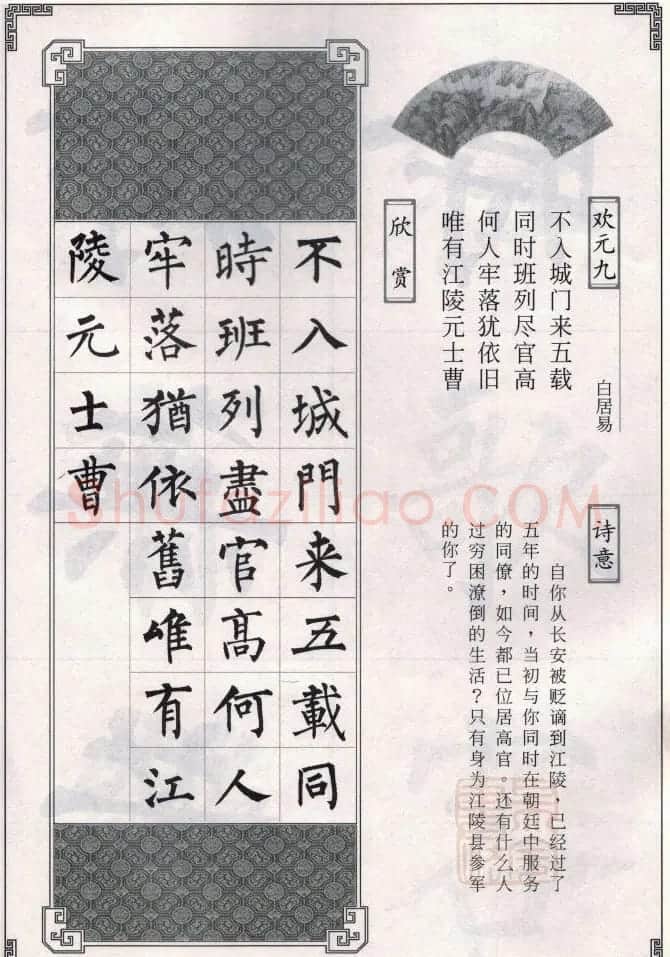 欢元九
白居易
不入城门来五载
同时班列尽官高
何人牢落犹依旧
唯有江陵元士曹
诗意
自你从长安被贬谪到江陵，已经过了
五年的时间，当初与你同时在朝廷中服务
的同僚，如今都已位居高官。还有什么人
过穷困潦倒的生活？只有身为江陵县参军
的你了。
欣赏
不入城門来五載同
時班列盡官高何人
牢落猶依舊唯有江
陵元士曹
Shufaziliao.COM